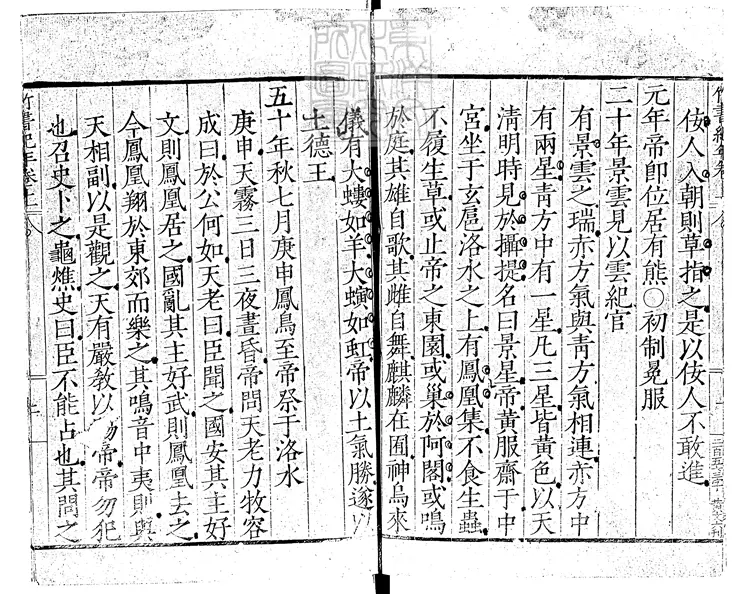 佞人入朝則草指之是以佞人不敢進
元年帝即位居有熊○初制冕服
二十年景雲見以雲紀官
有景雲之瑞赤方氣與青方氣相連赤方中
有兩星青方中有一星凡三星皆黃色以天
清明時見於攝提名曰景星帝黃服齋于中
宮坐于玄扈洛水之上有鳳凰集不食生蟲
不履生草或止帝之東園或巢於阿閣或鳴
於庭其雄自歌其雌自舞麒麟在囿神鳥來
儀有大螻如羊大螾如虹帝以土氣勝遂以
土德王
五十年秋七月庚申鳳鳥至帝祭于洛水
庚申天霧三日三夜晝昏帝問天老力牧容
成曰於公何如天老曰臣聞之國安其主好
文則鳳凰居之國亂其主好武則鳳凰去之
今鳳凰翔於東郊而樂之其鳴音中夷則與
天相副以是觀之天有嚴教以 帝帝勿犯
也召史卜之龜燋史曰臣不能占也其問之
竹書紀年卷上